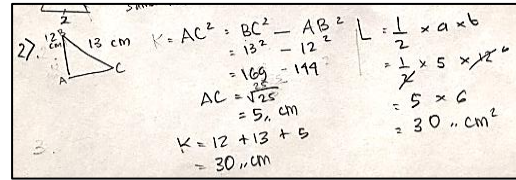 2
2). 12 cm B 13 cm
A C
K = AC² = BC² - AB²
= 13² - 12²
= 169 - 144
25
AC = √25
= 5,, cm
K = 12 + 13 + 5
= 30,, cm
L = 1/2 × a × b
= 1/2 × 5 × 12 6
= 5 × 6
= 30,, cm²
3.